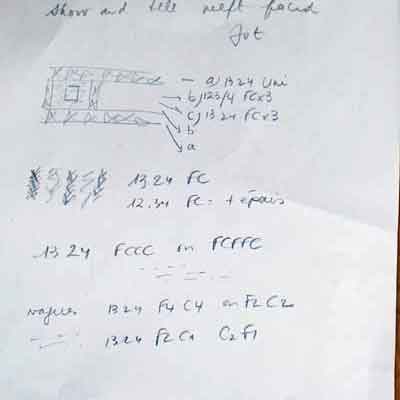 Show and tell
Jut
— a) 1324 Uni
b) 123/4 FCx3
c) 1324 FCx3
b
a
1324 FC
12.34 FC = + épais
1324 FCCC FCFFC
vagues 1324 F4 C4 en F2 C2
1324 F2C1 C2F1